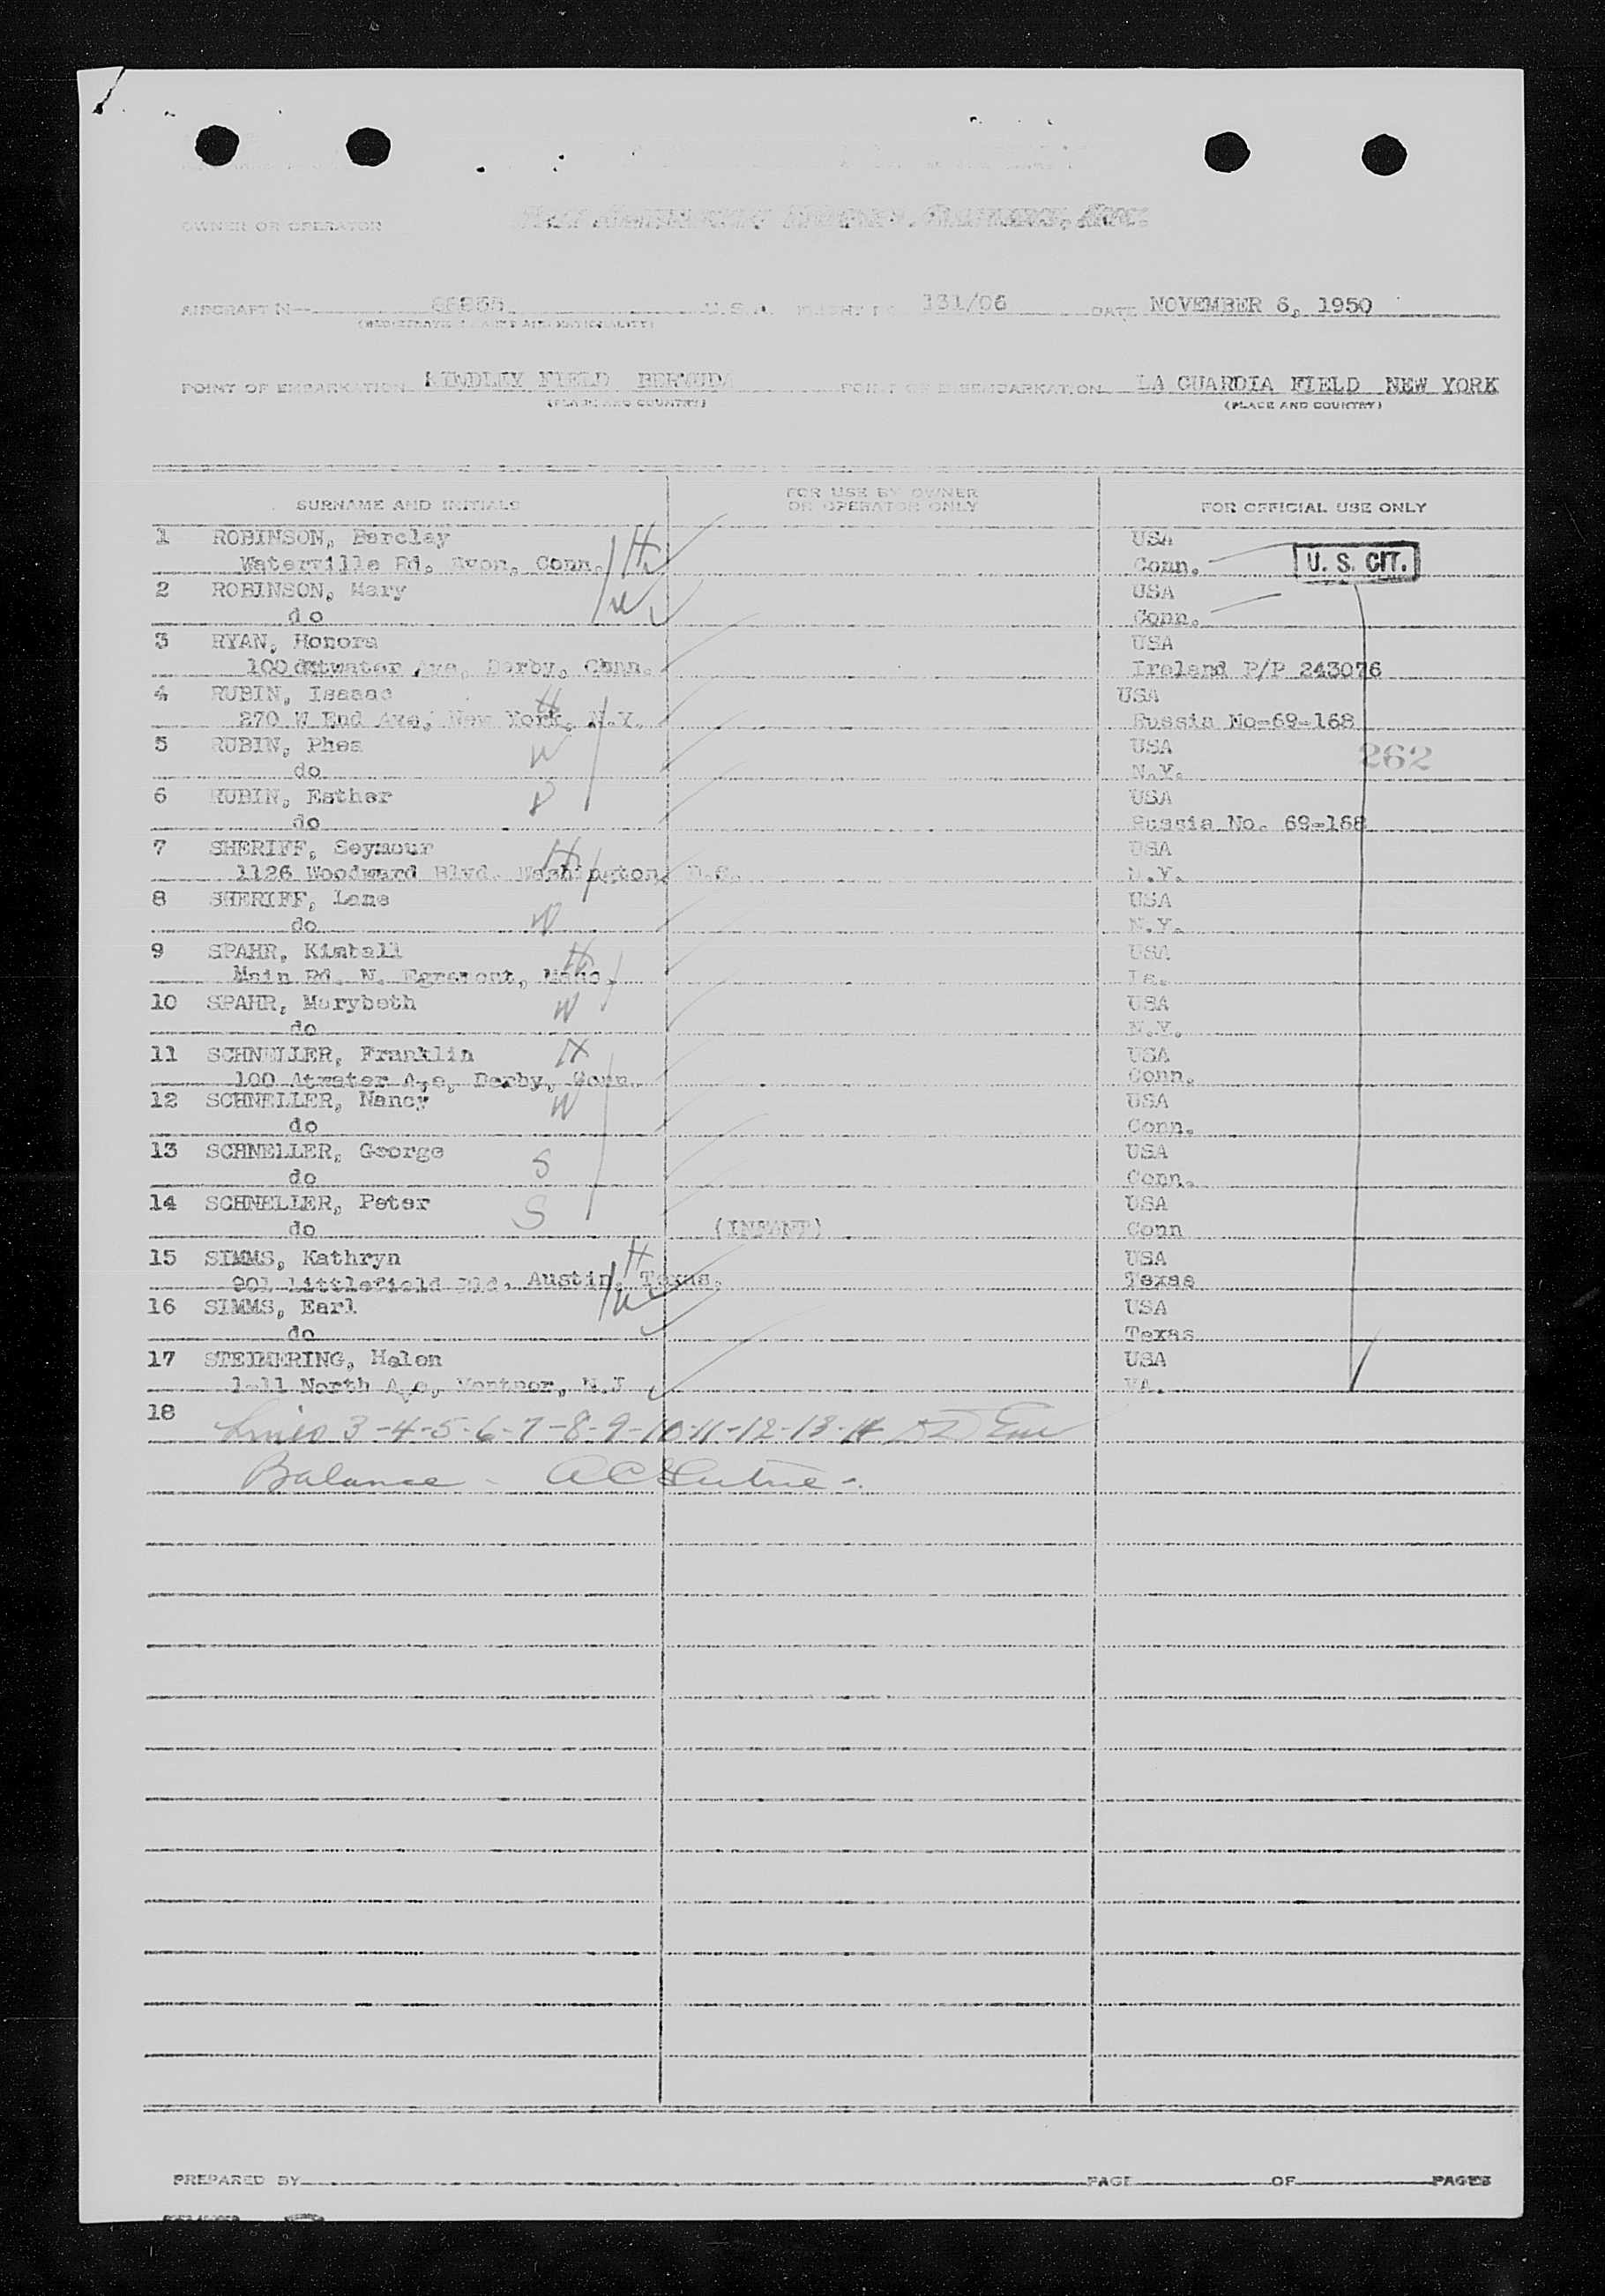 OWNER OR OPERATOR Pan American World Airways, Inc.
AIRCRAFT N— U.S.A. FLIGHT NO 131/06 DATE NOVEMBER 6, 1950
(REGISTRATION MARKS AND NATIONALITY)
POINT OF EMBARKATION KINDLEY FIELD BERMUDA POINT OF DISEMBARKATION LA GUARDIA FIELD NEW YORK
(PLACE AND COUNTRY) (PLACE AND COUNTRY)
SURNAME AND INITIALS FOR USE BY OWNER OR OPERATOR ONLY FOR OFFICIAL USE ONLY
1 ROBINSON, Barclay H USA
Waterville Rd. Avon, Conn. Conn. U. S. CIT.
2 ROBINSON, Mary W USA
do Conn.
3 RYAN, Honora USA
100 Atwater Ave. Derby, Conn. Ireland P/P 243076
4 RUBIN, Isaaac H USA
270 W End Ave, New York, N.Y. Russia No-69-168
5 RUBIN, Phea W USA 262
do N.Y.
6 RUBIN, Esther D USA
do Russia No. 69-168
7 SHERIFF, Seymour H USA
1126 Woodward Blvd. Washington, D.C. N.Y.
8 SHERIFF, Lane W USA
do N.Y.
9 SPAHR, Kimball H USA
Main Rd. N. Egremont, Mass. Ia.
10 SPAHR, Marybeth W USA
do N.Y.
11 SCHNELLER, Franklin H USA
100 Atwater Ave, Derby, Conn Conn.
12 SCHNELLER, Nancy W USA
do Conn.
13 SCHNELLER, George S USA
do Conn.
14 SCHNELLER, Peter S USA
do (INFANT) Conn
15 SIMMS, Kathryn H USA
901 Littlefield Bld. Austin, Texas. Texas
16 SIMMS, Earl W USA
do Texas
17 STEIMERING, Helen USA
North Ave, Ventnor, N.J VA.
18 Lines 3-4-5-6-7-8-9-10-11-12-13-14
Balance -
PREPARED BY PAGE OF PAGES